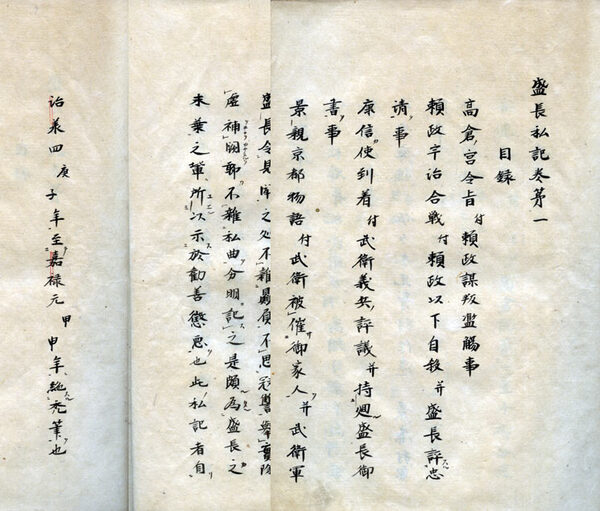 盛長私記巻第一
目録
高倉宮令旨付頼政謀叛濫觴事
頼政宇治合戦付頼政以下自殺并盛長評忠
請事
康信使到着付武衛義兵評議并持廻盛長御
書事
景親京都物語付武衛被催御家人并武衛軍
盛長令見聞之処不雑贔屓不思寇讐挙実除
虚補闕聊不雑私曲分明記之是頗為盛長之
末葉之輩所以示於勧善懲悪也此私記者自
治承四庚子年至嘉禄元甲申年絶筆也